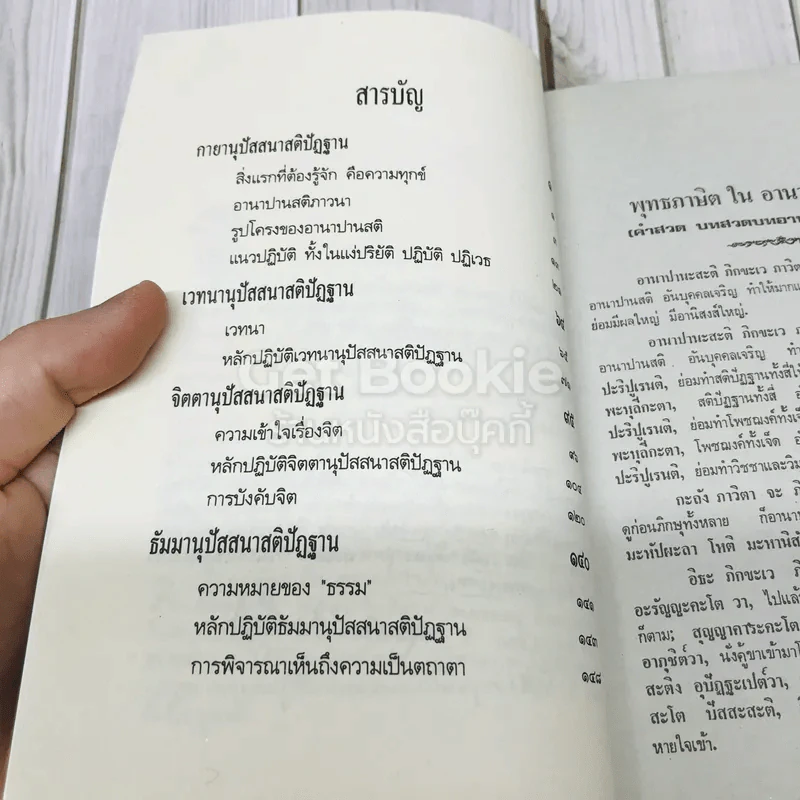 สารบัญ
กายานุปัสสนาสติปัฏฐาน
สิ่งแรกที่ต้องรู้จัก คือความทุกข์
อานาปานสติภาวนา
รูปโครงของอานาปานสติ
แนวปฏิบัติ ทั้งในแง่ปริยัติ ปฏิบัติ ปฏิเวธ
เวทนานุปัสสนาสติปัฏฐาน
เวทนา
หลักปฏิบัติเวทนานุปัสสนาสติปัฏฐาน
จิตตานุปัสสนาสติปัฏฐาน
ความเข้าใจเรื่องจิต
หลักปฏิบัติจิตตานุปัสสนาสติปัฏฐาน ๑๐๔
การบังคับจิต ๑๒๐
ธัมมานุปัสสนาสติปัฏฐาน ๑๔๐
ความหมายของ "ธรรม" ๑๔๑
หลักปฏิบัติธัมมานุปัสสนาสติปัฏฐาน ๑๔๓
การพิจารณาเห็นถึงความเป็นตถาตา ๑๔๘
Get Bookie
ร้านหนังสือบุ๊คกี้
พุทธภาษิต ใน
(คำสวด บทสวดบท
อานาปานะสะติ ภิกขะเว
อานาปานสติ อันบุคคลเจริญ ทำให้มาก
ย่อมมีผลใหญ่ มีอานิสงส์ใหญ่.
อานาปานะสะติ ภิกขะเว
อานาปานสติ อันบุคคลเจริญ
ปะริปูเรนติ, ย่อมทำสติปัฏฐานทั้งสี่ให้
พะหุลีกะตา, สติปัฏฐานทั้งสี่
ปะริปูเรนติ, ย่อมทำโพชฌงค์ทั้งเจ็ด
พะหุลีกะตา, โพชฌงค์ทั้งเจ็ด
ปะริปูเรนติ, ย่อมทำวิชชาและ
กะถัง ภาวิตา จะ
ดูก่อนภิกษุทั้งหลาย ก็
มะหัปผะลา โหติ
อิธะ ภิกขะเว
อะรัญญะคะโต วา, ไปแล้ว
ก็ตาม; สุญญาคาระคะโต
นั่งคู้ขาเข้ามา
สะติง อุปัฏฐะเปต์วา,
สะโต ปัสสะสะติ,
หายใจเข้า.